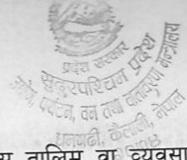 प्रदेश सरकार
सुदूरपश्चिम प्रदेश
उद्योग, पर्यटन, वन तथा वातावरण मन्त्रालय
धनगढी, कैलाली, नेपाल
तालिम वा व्यवसा